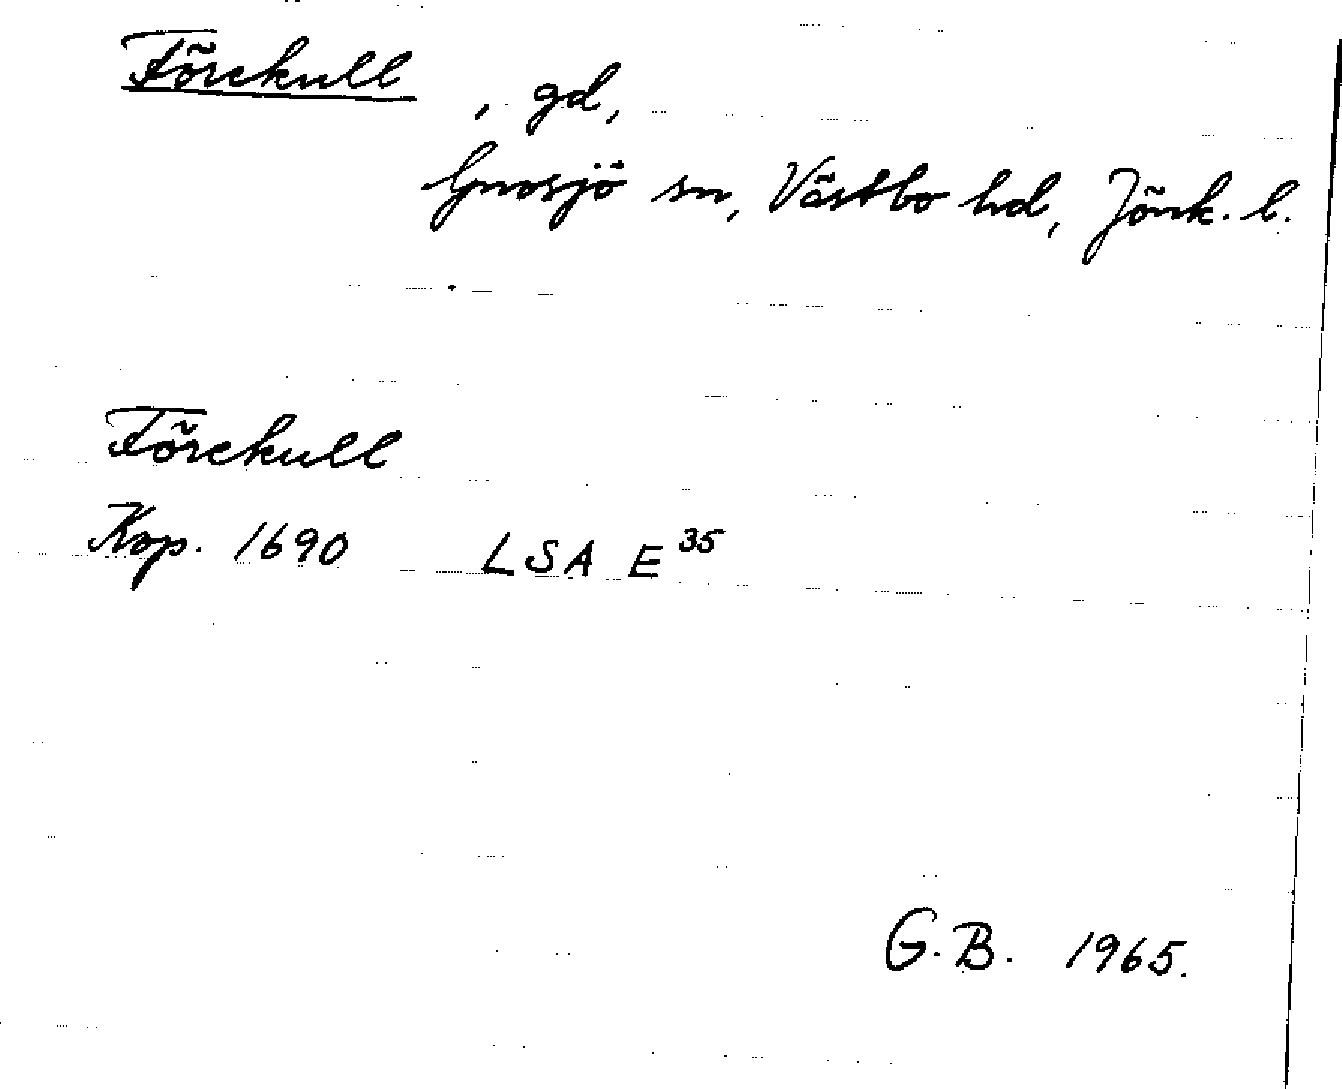 Törekull, gd,
Gnosjö sn, Västbo hd, Jönk. l.
Törekull
Kop. 1690 LSA E 35
G.B. 1965.